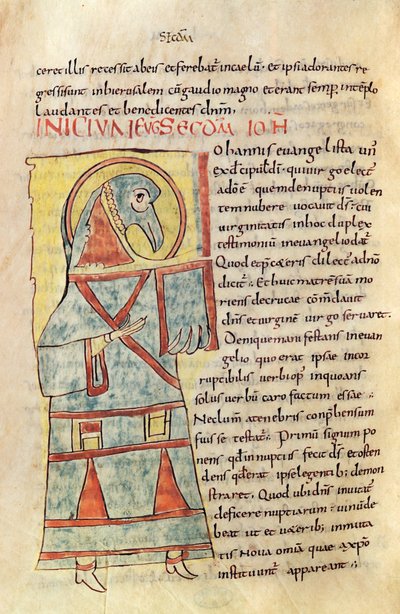 ceret illis recessit abeis et ferebat̃ incaelũ, et ipsi adorantes re
gressi sunt inhierusalem cũ gaudio magno et erant semp̃ intẽplo
laudantes et benedicentes dnm̃,
INICIUM EUG̃ SECDAM IOH̃
Iohannis evangelista un̅
ex discipulis dĩ qui virgo elect̃
a dõ ẽ quem de nuptiis volen
tem nubere vocavit ds̃ cui
virginitatis inhoc duplex
testimoniũ inevangelio dat̃
Quod et p̃ ceteris dilect̃ a dnõ
dicit̃ Et huic matrẽ suã mo
riens decruce cõmdavit
dns̃ et virginẽ virgo servaret.
Denique manifestans inevan
gelio quod erat ipse incor
ruptibilis verbi op̃ inquoans
solus verbũ caro factum esse
Nec lum̃ atenebris conp̃hensum
fuisse testat̃. Primũ signum po
nens qd̃ innuptiis fecit ds̃ et osten
dens qd̃ erat ipse legentib; demon
straret. Quod ubi dns̃ invitat̃
deficere nuptiarum vinũ de
beat ut et veterib; inmuta
tis Nova omĩa quae a xpõ
instituunt̃ appareant